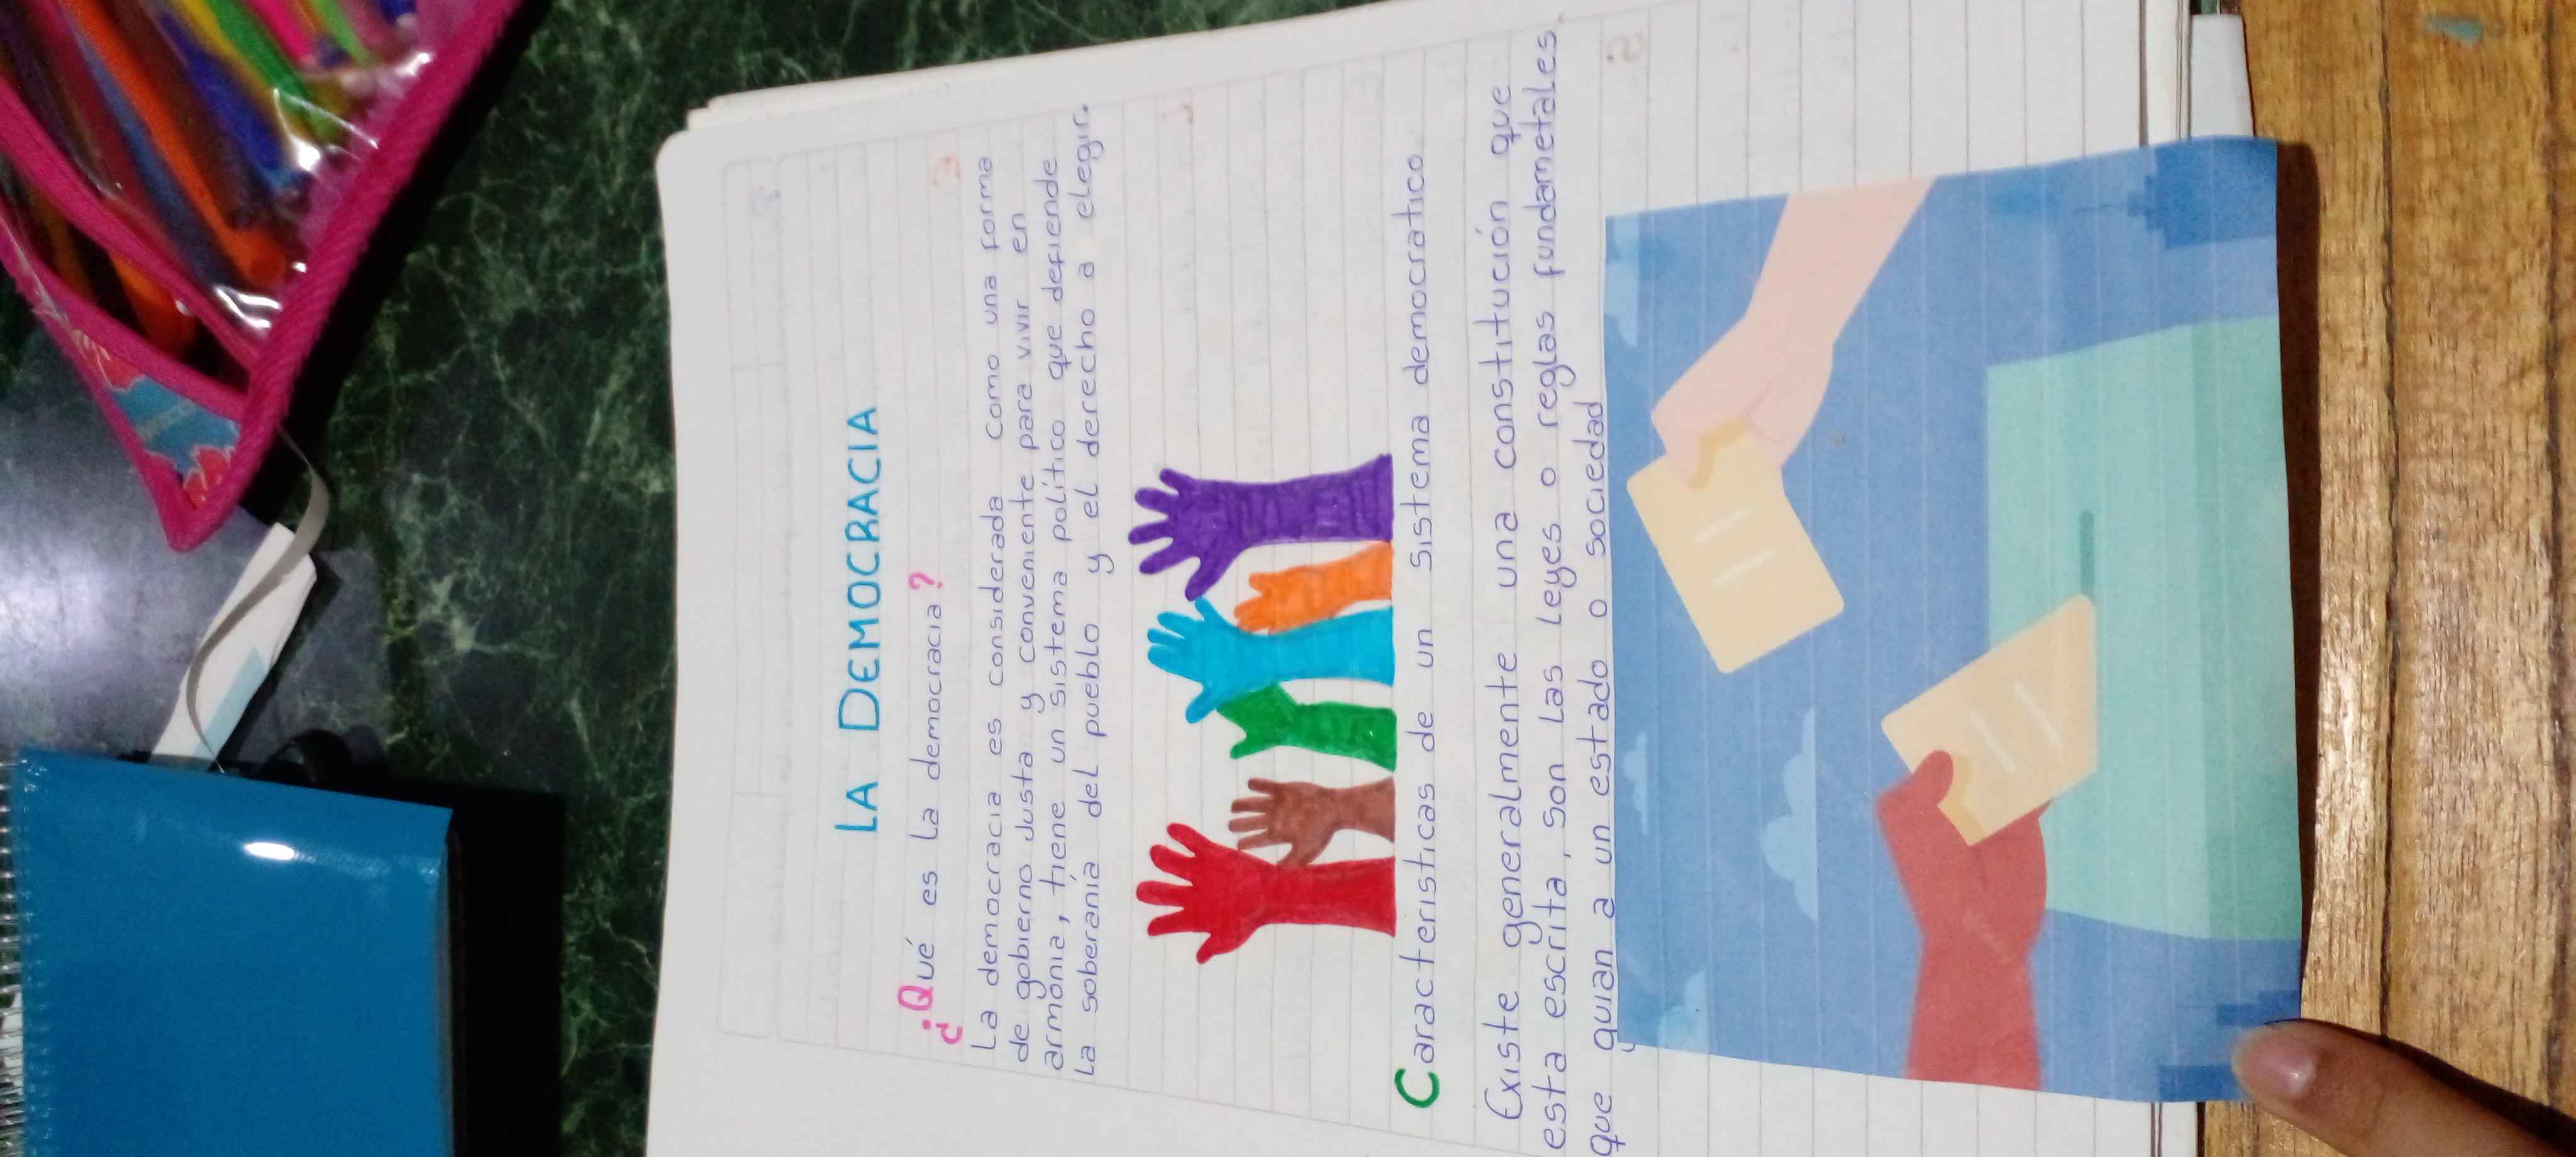 LA DEMOCRACIA
¿Qué es la democracia?
La democracia es considerada como una forma
de gobierno Justa y conveniente para vivir en
armonia, tiene un sistema político que defiende
La soberanía del pueblo y el derecho a elegir.
Caracteristicas de un sistema democratico
Existe generalmente una constitución que
esta escrita, son las leyes o reglas fundametales
que guian a un estado o sociedad